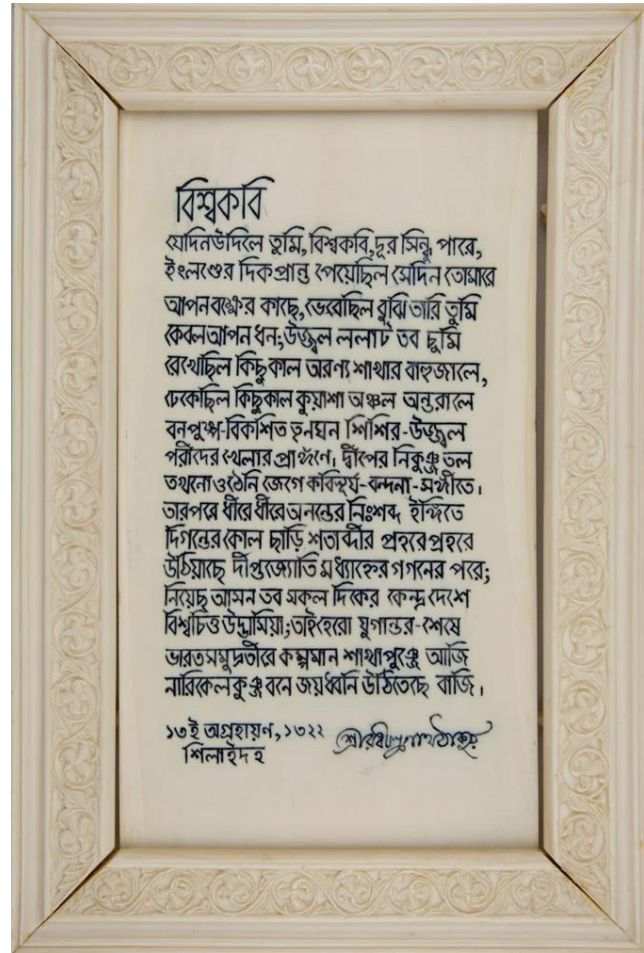 বিশ্বকবি
যেদিন উদিলে তুমি, বিশ্বকবি, দূর সিন্ধু পারে,
ইংলণ্ডের দিক প্রান্ত পেয়েছিল সেদিন তোমারে
আপন বক্ষের কাছে, ভেবেছিল বুঝি তারি তুমি
কেবল আপন ধন; উজ্জ্বল ললাট তব চুমি
রেখেছিল কিছুকাল অরণ্য শাখার বাহুজালে,
ঢেকেছিল কিছুকাল কুয়াশা অঞ্চল অন্তরালে
বনপুষ্প-বিকশিত তৃনঘন শিশির-উজ্জ্বল
পরীদের খেলার প্রাঙ্গণে। দ্বীপের নিকুঞ্জতল
তখনো ওঠেনি জেগে কবিসূর্য-বন্দনা-সঙ্গীতে।
তারপরে ধীরে ধীরে অনন্তের নিঃশব্দ ইঙ্গিতে
দিগন্তের কোল ছাড়ি শতাব্দীর প্রহরে প্রহরে
উঠিয়াছে দীপ্তজ্যোতি মধ্যাহ্নের গগনের পরে;
নিয়েছ আসন তব সকল দিকের কেন্দ্র দেশে
বিশ্বচিত্ত উদ্ভাসিয়া; তাই হেরো যুগান্তর-শেষে
ভারতসমুদ্রতীরে কম্পমান শাখাপুঞ্জে আজি
নারিকেল কুঞ্জবনে জয়ধ্বনি উঠিতেছে বাজি।
১৩ই অগ্রহায়ন, ১৩২২
শ্রীরবীন্দ্রনাথ ঠাকুর
শিলাইদহ